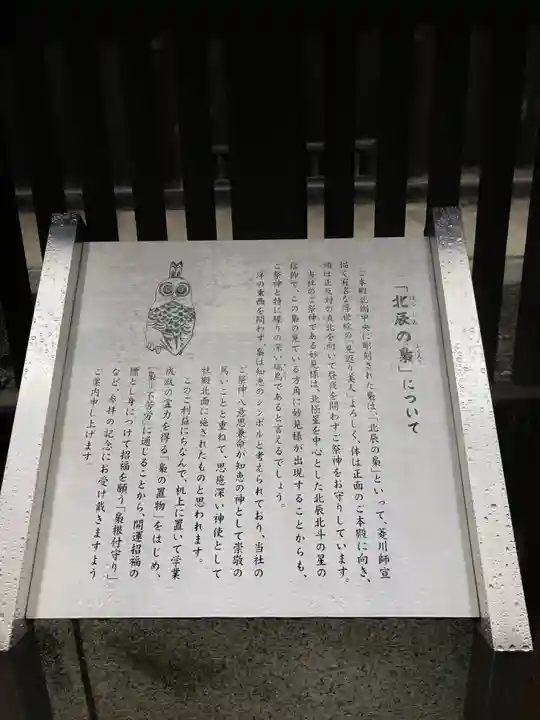 「北辰の梟」について
ご本殿北側中央に彫刻された梟は、「北辰の梟」といって、菱川師宣
描く有名な浮世絵の「見返り美人」よろしく、体は正面のご本殿に向き、
頭は正反対の真北を向いて昼夜を問わずご祭神をお守りしています。
当社のご祭神である妙見様は、北極星を中心とした北辰北斗の星の
信仰で、この梟の見ている方角に妙見様が出現することからも、
ご祭神と特に縁りの深い瑞鳥であると言えるでしょう。
洋の東西を問わず、梟は知恵のシンボルと考えられており、当社の
ご祭神八意思兼命が知恵の神として崇敬の
篤いことと重ねて、思慮深い神使として
社殿北面に施されたものと思われます。
このご利益にちなんで、机上に置いて学業
成就の霊力を得る「梟の置物」をはじめ、
「梟」が「不苦労」に通じることから、開運招福の
腰とし身につけて招福を願う「梟根付守り」
など、参拝の記念にお受け戴きますよう
ご案内申し上げます